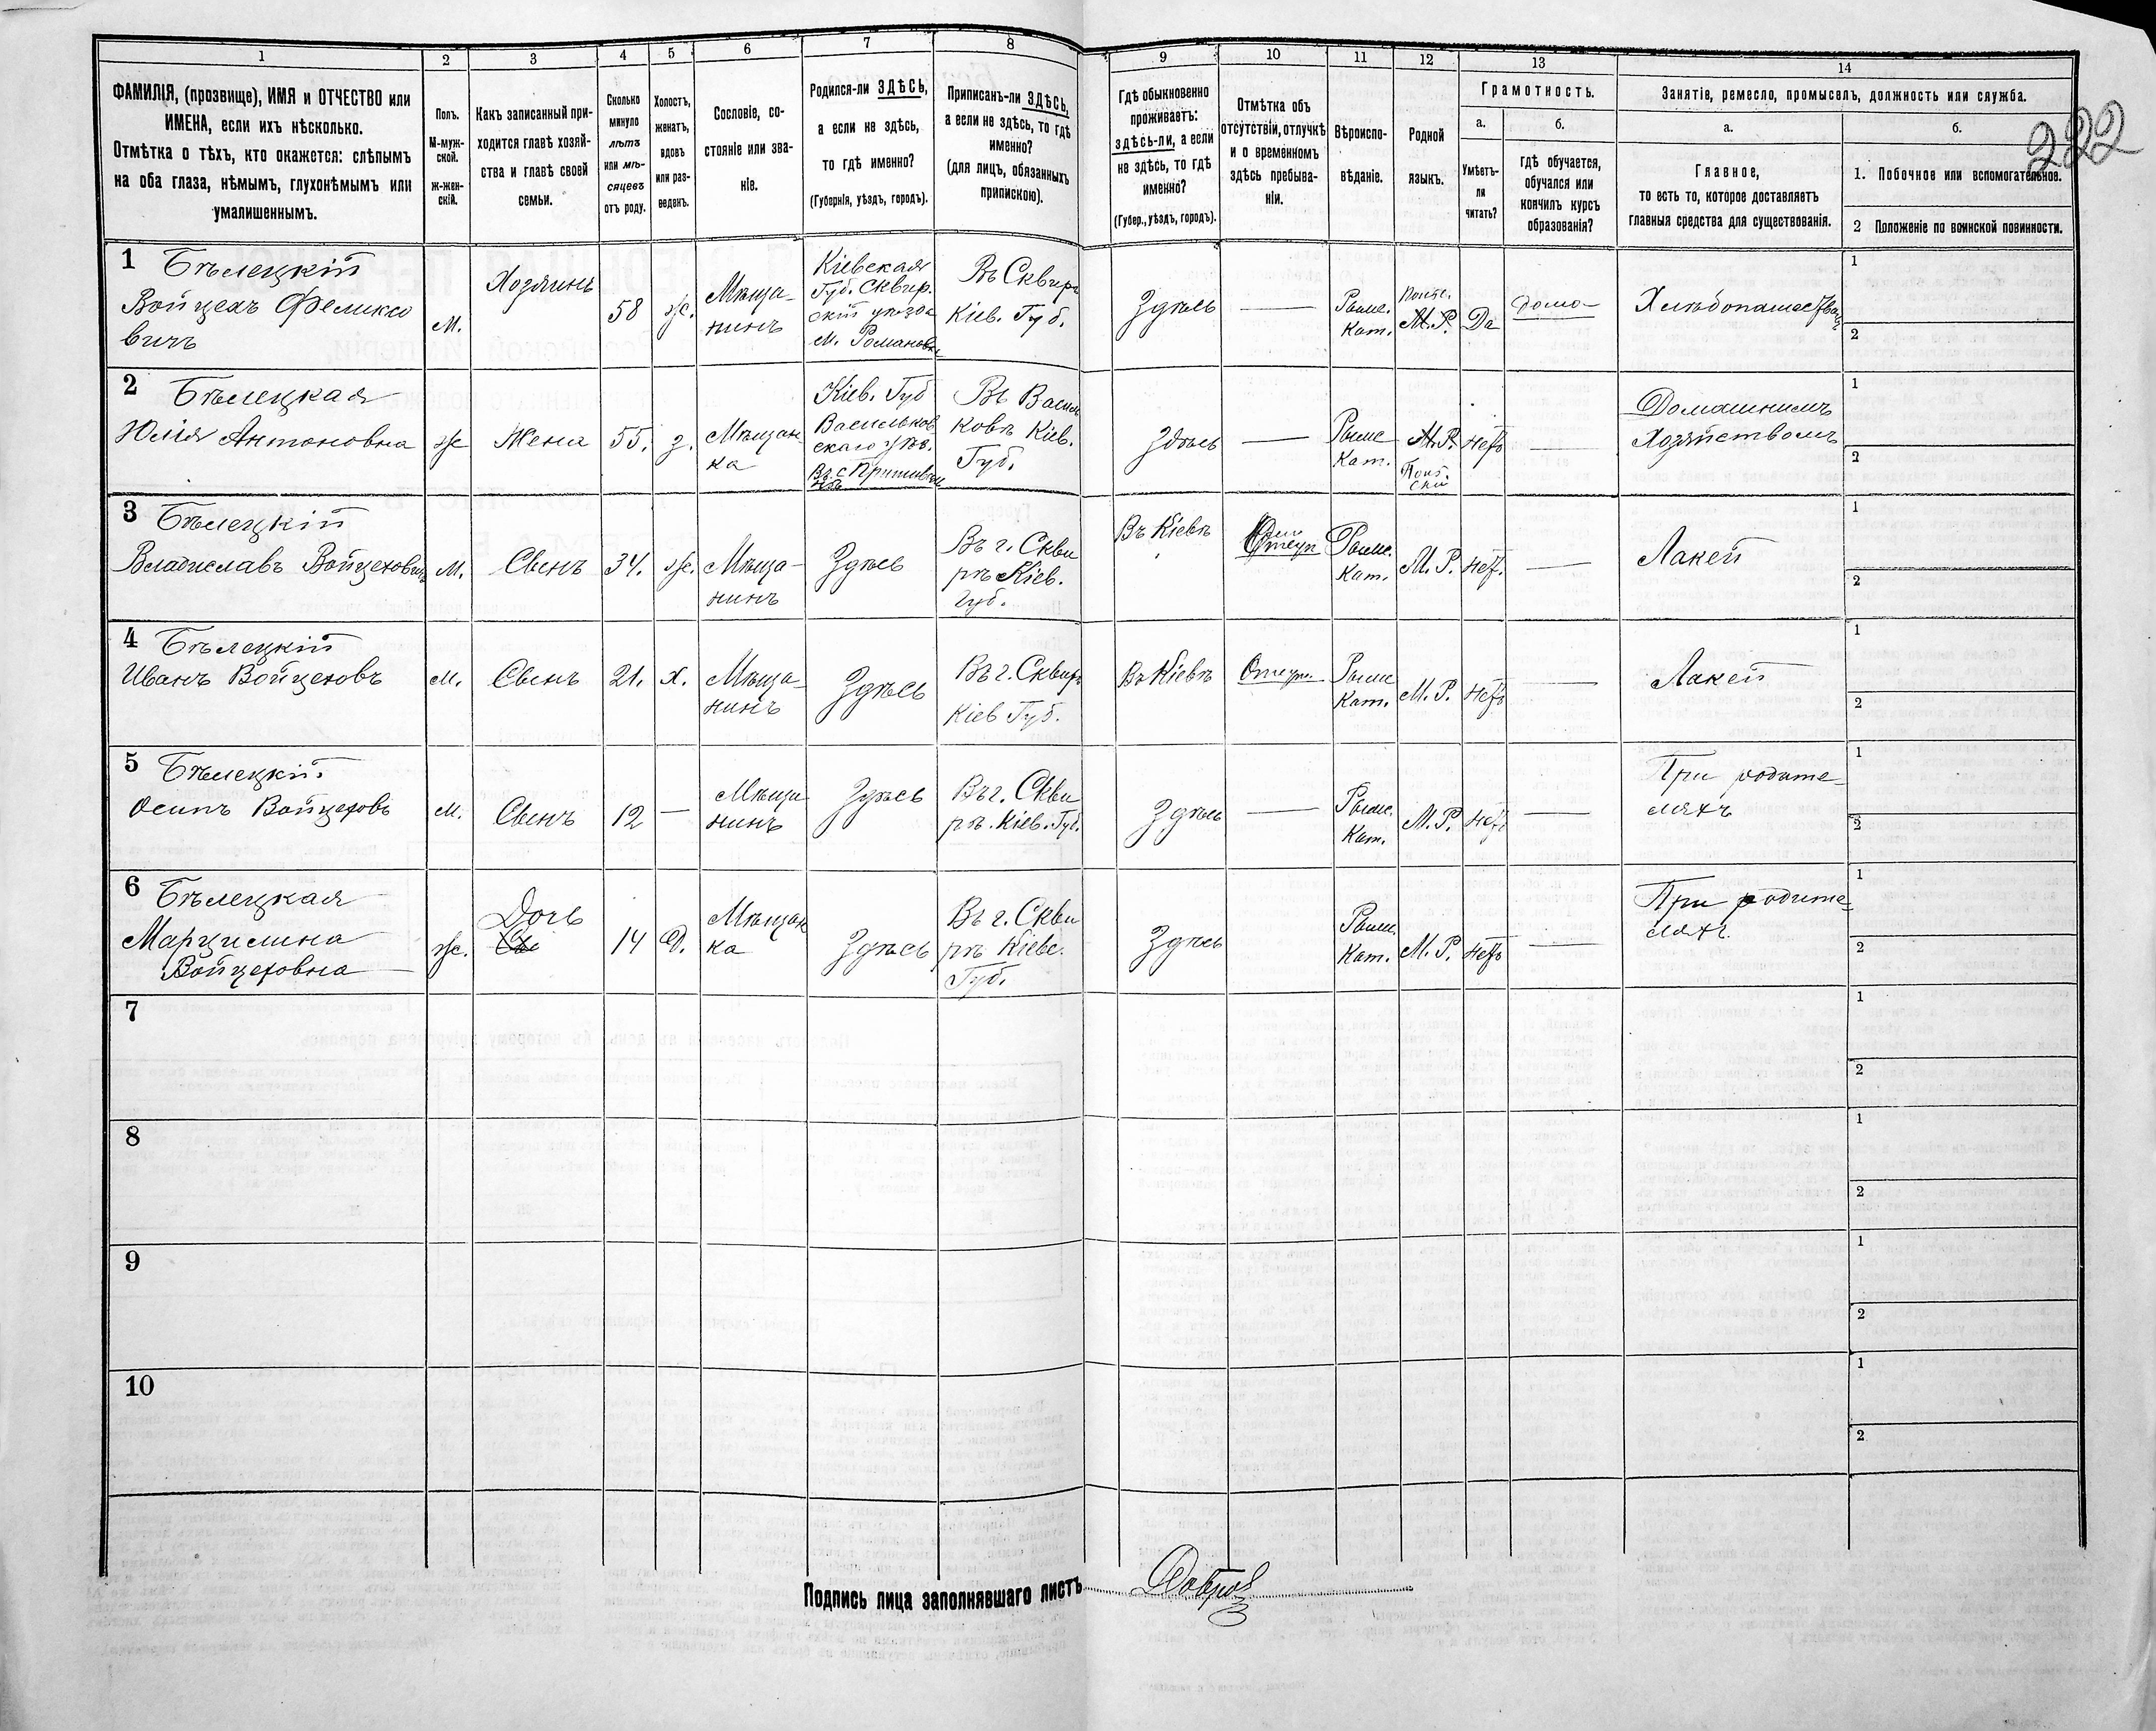 1
2
3
4
5
6
7
8
9
10
11
12
13
14
222
ФАМИЛІЯ, (прозвище), ИМЯ и ОТЧЕСТВО или
ИМЕНА, если ихъ нѣсколько.
Отмѣтка о тѣхъ, кто окажется: слѣпымъ
на оба глаза, нѣмымъ, глухонѣмымъ или
умалишеннымъ.
Полъ.
М-муж-
ской.
ж-жен-
скій.
Какъ записанный при-
ходится главѣ хозяй-
ства и главѣ своей
семьи.
Сколько
минуло
лѣтъ
или мѣ-
сяцевъ
отъ роду.
Холостъ,
женатъ,
вдовъ
или раз-
веденъ.
Сословіе, со-
стояніе или зва-
ніе.
Родился-ли ЗДѢСЬ,
а если не здѣсь,
то гдѣ именно?
(Губернія, уѣздъ, городъ).
Приписанъ-ли ЗДѢСЬ,
а если не здѣсь, то гдѣ
именно?
(для лицъ, обязанныхъ
припискою).
Гдѣ обыкновенно
проживаетъ:
здѣсь-ли, а если
не здѣсь, то гдѣ
именно?
(Губер., уѣздъ, городъ).
Отмѣтка объ
отсутствіи, отлучкѣ
и о временномъ
здѣсь пребыва-
ніи.
Вѣроиспо-
вѣданіе.
Родной
языкъ.
Грамотность.
а.
Умѣетъ-
ли
читать?
б.
гдѣ обучается,
обучался или
кончилъ курсъ
образованія?
Занятіе, ремесло, промыселъ, должность или служба.
а.
Главное,
то есть то, которое доставляетъ
главныя средства для существованія.
б.
1. Побочное или вспомогательное.
2 Положеніе по воинской повинности.
1 Бѣлецкій
Войцехъ Феликсо
вичъ
М.
Хозяинъ
58
ж.
Мѣща-
нинъ
Кіевская
Губ. Сквир.
скій уѣзда
м. Романовка
Въ Сквирѣ
Кіев. Губ.
Здѣсь
—
Римс.
Кат.
М. Р.
Да
дома
Хлѣбопашествомъ
1
2
2 Бѣлецкая
Юлія Антоновна
ж
Жена
55.
з.
Мѣщан
ка
Кіев. Губ
Васильков
скаго уѣз.
Въ Василь
ковѣ Кіев.
Губ.
здѣсь
—
Римс
Кат.
М. Р.
Поль
скій
нетъ
—
Домашнимъ
Хозяйствомъ
1
2
3 Бѣлецкій
Владиславъ Войцеховичъ
М.
Сынъ
34.
ж.
Мѣща-
нинъ
Здѣсь
Въ г. Скви
рѣ Кіев.
Губ.
Въ Кіевѣ
Римс.
Кат.
М. Р.
нет.
—
Лакей
1
2
4 Бѣлецкій
Иванъ Войцеховъ
М.
Сынъ
21.
х.
Мѣща-
нинъ
Здѣсь
Въ г. Сквирѣ
Кіев Губ.
Въ Кіевѣ
Отлуч.
Римс
Кат.
М. Р.
нетъ
—
Лакей
1
2
5 Бѣлецкій
Осипъ Войцеховъ
М.
Сынъ
12
—
Мѣща
нинъ
Здѣсь
Въ г. Скви
рѣ. Кіев. Губ.
Здѣсь
—
Римс.
Кат.
М. Р.
нетъ
—
При родите-
ляхъ
1
2
6 Бѣлецкая
Марцилина
Войцеховна
ж.
Дочь
14
д.
Мѣщан
ка
Здѣсь
Въ г. Скви
рѣ Кіевс.
Губ.
Здѣсь
Римс.
Кат.
М. Р.
нетъ
—
При родите-
ляхъ.
1
2
7
1
2
8
1
2
9
1
2
10
1
2
Подпись лица заполнявшаго листъ